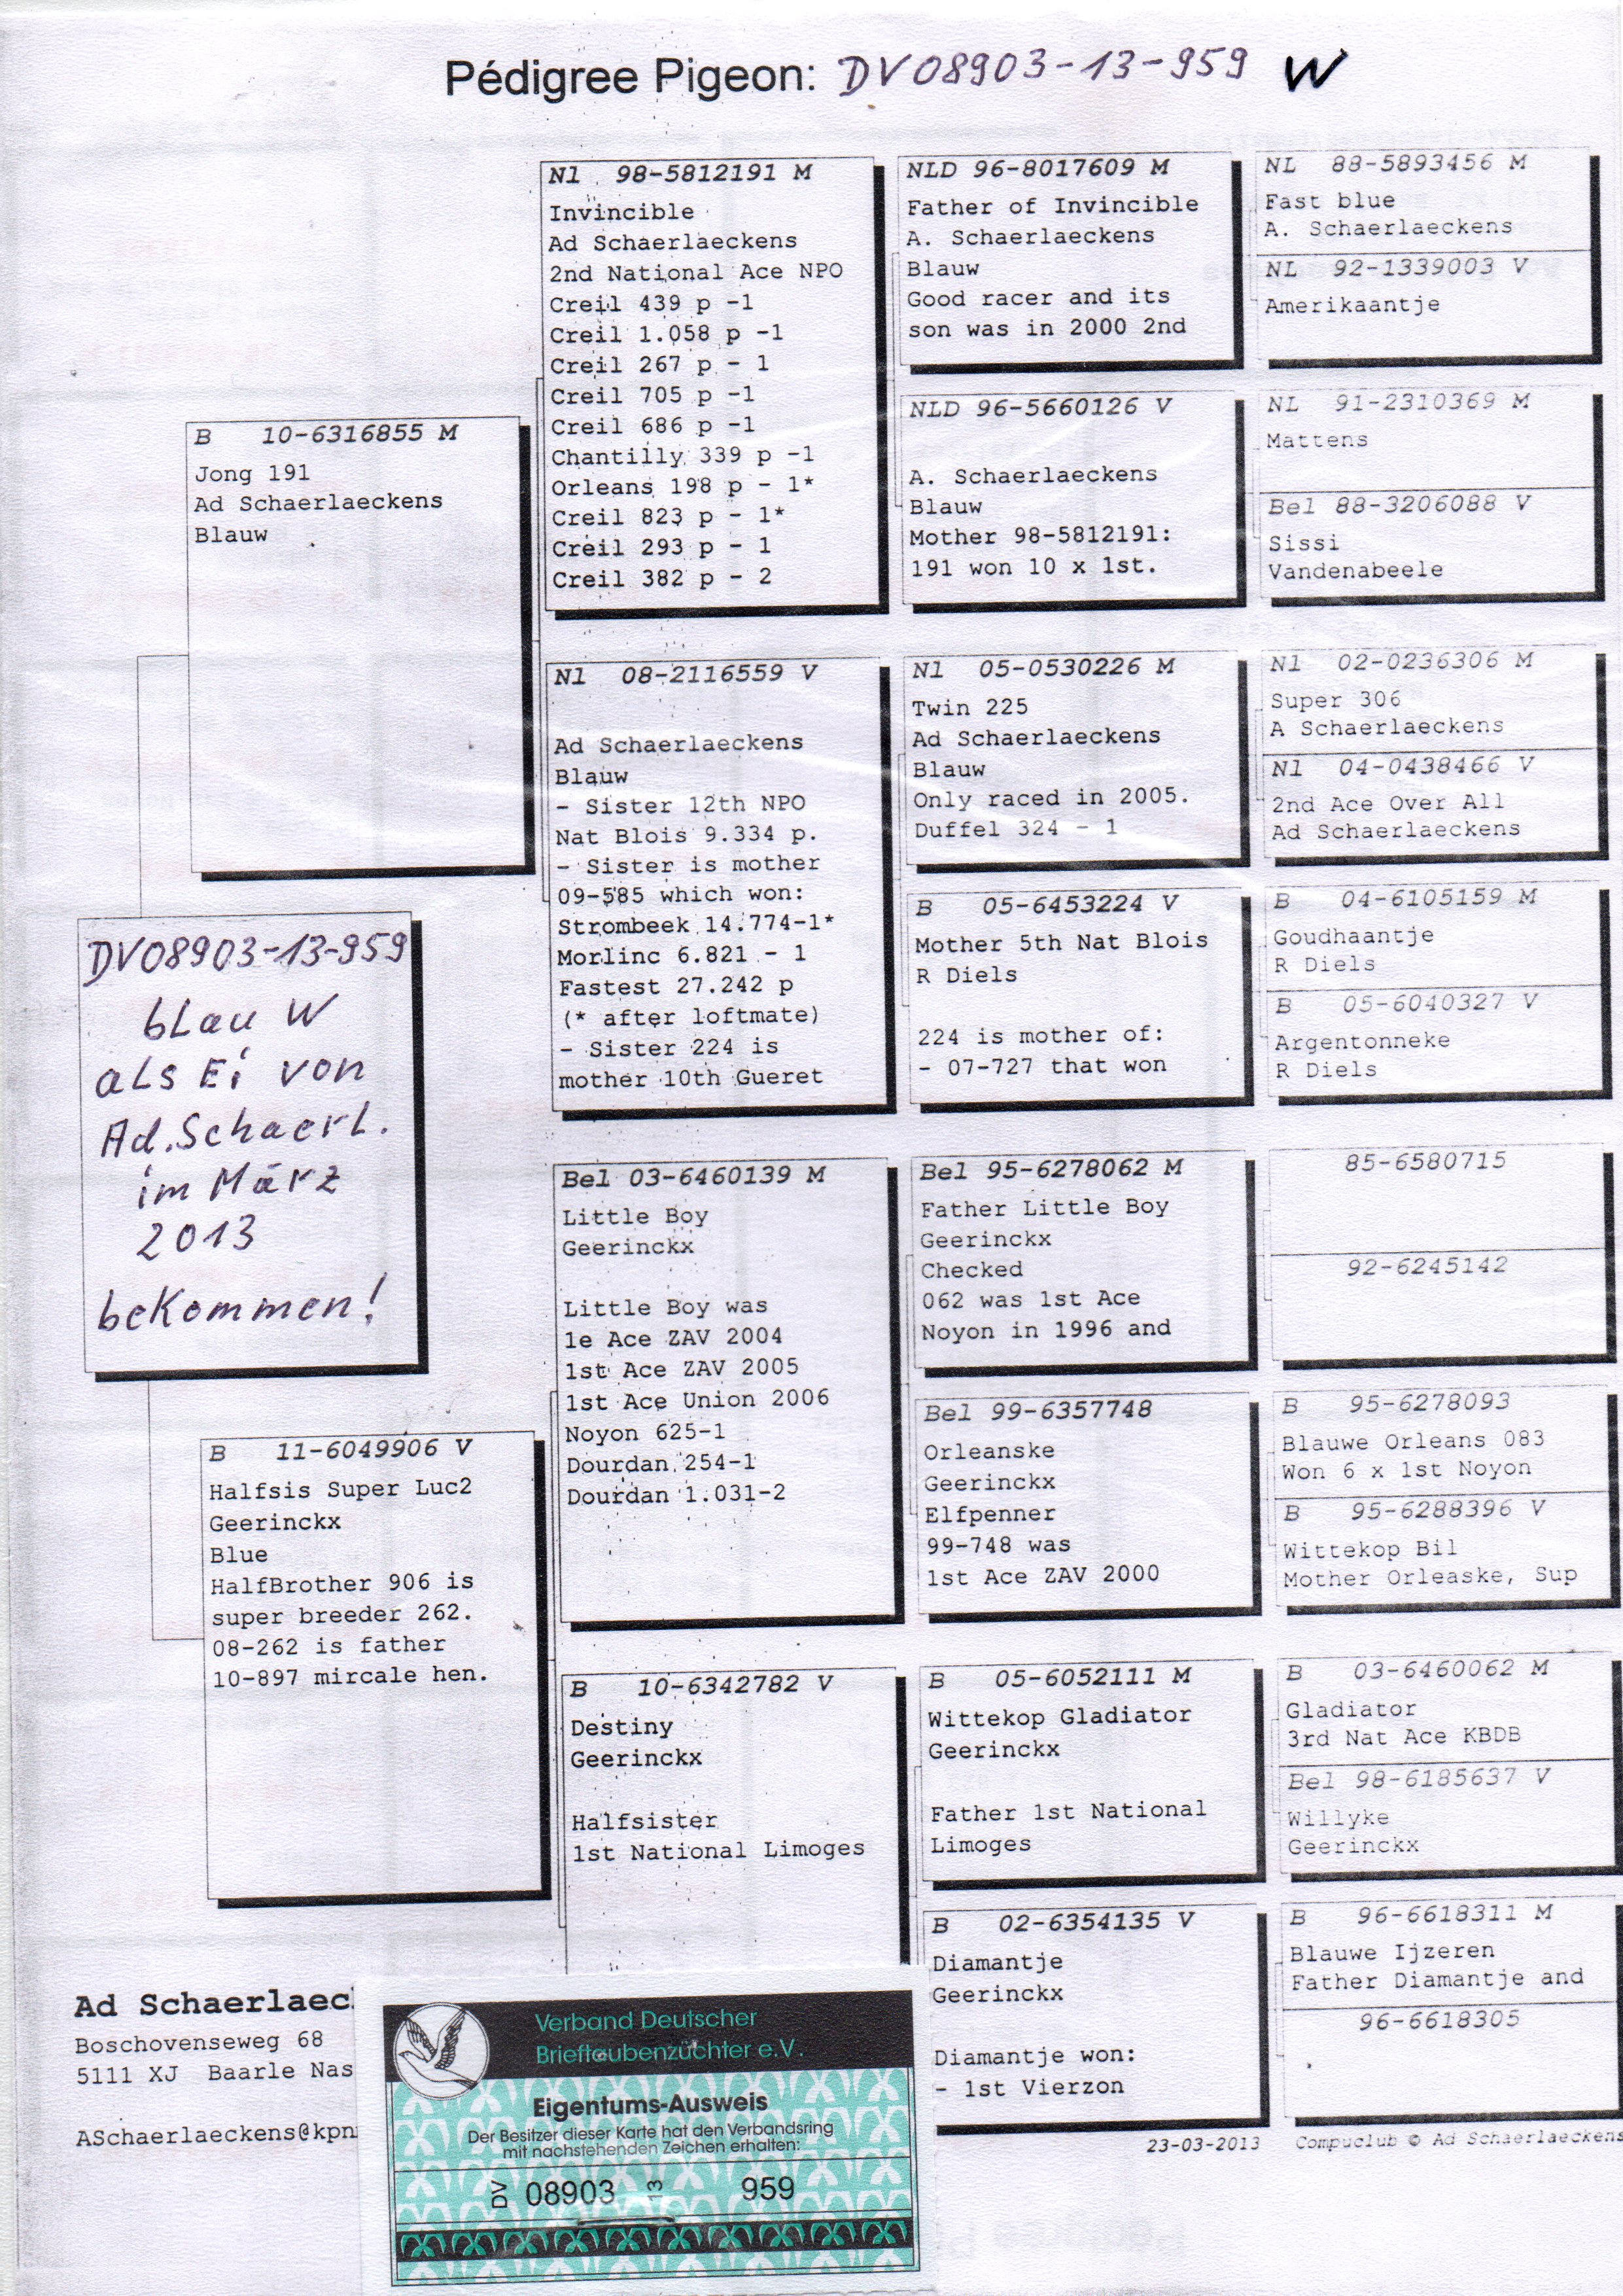 Pédigree Pigeon: DV08903-13-959 W
B 10-6316855 M
Jong 191
Ad Schaerlaeckens
Blauw
DV08903-13-959
blau W
als Ei von
Ad. Schaerl.
im März
2013
bekommen!
B 11-6049906 V
Halfsis Super Luc2
Geerinckx
Blue
HalfBrother 906 is
super breeder 262.
08-262 is father
10-897 mircale hen.
Nl 98-5812191 M
Invincible
Ad Schaerlaeckens
2nd National Ace NPO
Creil 439 p -1
Creil 1.058 p -1
Creil 267 p - 1
Creil 705 p -1
Creil 686 p -1
Chantilly 339 p -1
Orleans 198 p - 1*
Creil 823 p - 1*
Creil 293 p - 1
Creil 382 p - 2
Nl 08-2116559 V
Ad Schaerlaeckens
Blauw
- Sister 12th NPO
Nat Blois 9.334 p.
- Sister is mother
09-585 which won:
Strombeek 14.774-1*
Morlinc 6.821 - 1
Fastest 27.242 p
(* after loftmate)
- Sister 224 is
mother 10th Gueret
Bel 03-6460139 M
Little Boy
Geerinckx
Little Boy was
1e Ace ZAV 2004
1st Ace ZAV 2005
1st Ace Union 2006
Noyon 625-1
Dourdan 254-1
Dourdan 1.031-2
B 10-6342782 V
Destiny
Geerinckx
Halfsister
1st National Limoges
NLD 96-8017609 M
Father of Invincible
A. Schaerlaeckens
Blauw
Good racer and its
son was in 2000 2nd
NLD 96-5660126 V
A. Schaerlaeckens
Blauw
Mother 98-5812191:
191 won 10 x 1st.
Nl 05-0530226 M
Twin 225
Ad Schaerlaeckens
Blauw
Only raced in 2005.
Duffel 324 - 1
B 05-6453224 V
Mother 5th Nat Blois
R Diels
224 is mother of:
- 07-727 that won
Bel 95-6278062 M
Father Little Boy
Geerinckx
Checked
062 was 1st Ace
Noyon in 1996 and
Bel 99-6357748
Orleanske
Geerinckx
Elfpenner
99-748 was
1st Ace ZAV 2000
B 05-6052111 M
Wittekop Gladiator
Geerinckx
Father 1st National
Limoges
B 02-6354135 V
Diamantje
Geerinckx
Diamantje won:
- 1st Vierzon
NL 88-5893456 M
Fast blue
A. Schaerlaeckens
NL 92-1339003 V
Amerikaantje
NL 91-2310369 M
Mattens
Bel 88-3206088 V
Sissi
Vandenabeele
Nl 02-0236306 M
Super 306
A Schaerlaeckens
Nl 04-0438466 V
2nd Ace Over All
Ad Schaerlaeckens
B 04-6105159 M
Goudhaantje
R Diels
B 05-6040327 V
Argentonneke
R Diels
85-6580715
92-6245142
B 95-6278093
Blauwe Orleans 083
Won 6 x 1st Noyon
B 95-6288396 V
Wittekop Bil
Mother Orleaske, Sup
B 03-6460062 M
Gladiator
3rd Nat Ace KBDB
Bel 98-6185637 V
Willyke
Geerinckx
B 96-6618311 M
Blauwe Ijzeren
Father Diamantje and
96-6618305
23-03-2013 Compuclub © Ad Schaerlaeckens
Ad Schaerlaec
Boschovenseweg 68
5111 XJ Baarle Nas
ASchaerlaeckens@kpn
Verband Deutscher
Brieftaubenzüchter e.V.
Eigentums-Ausweis
Der Besitzer dieser Karte hat den Verbandsring
mit nachstehenden Zeichen erhalten:
DV 08903 13 959